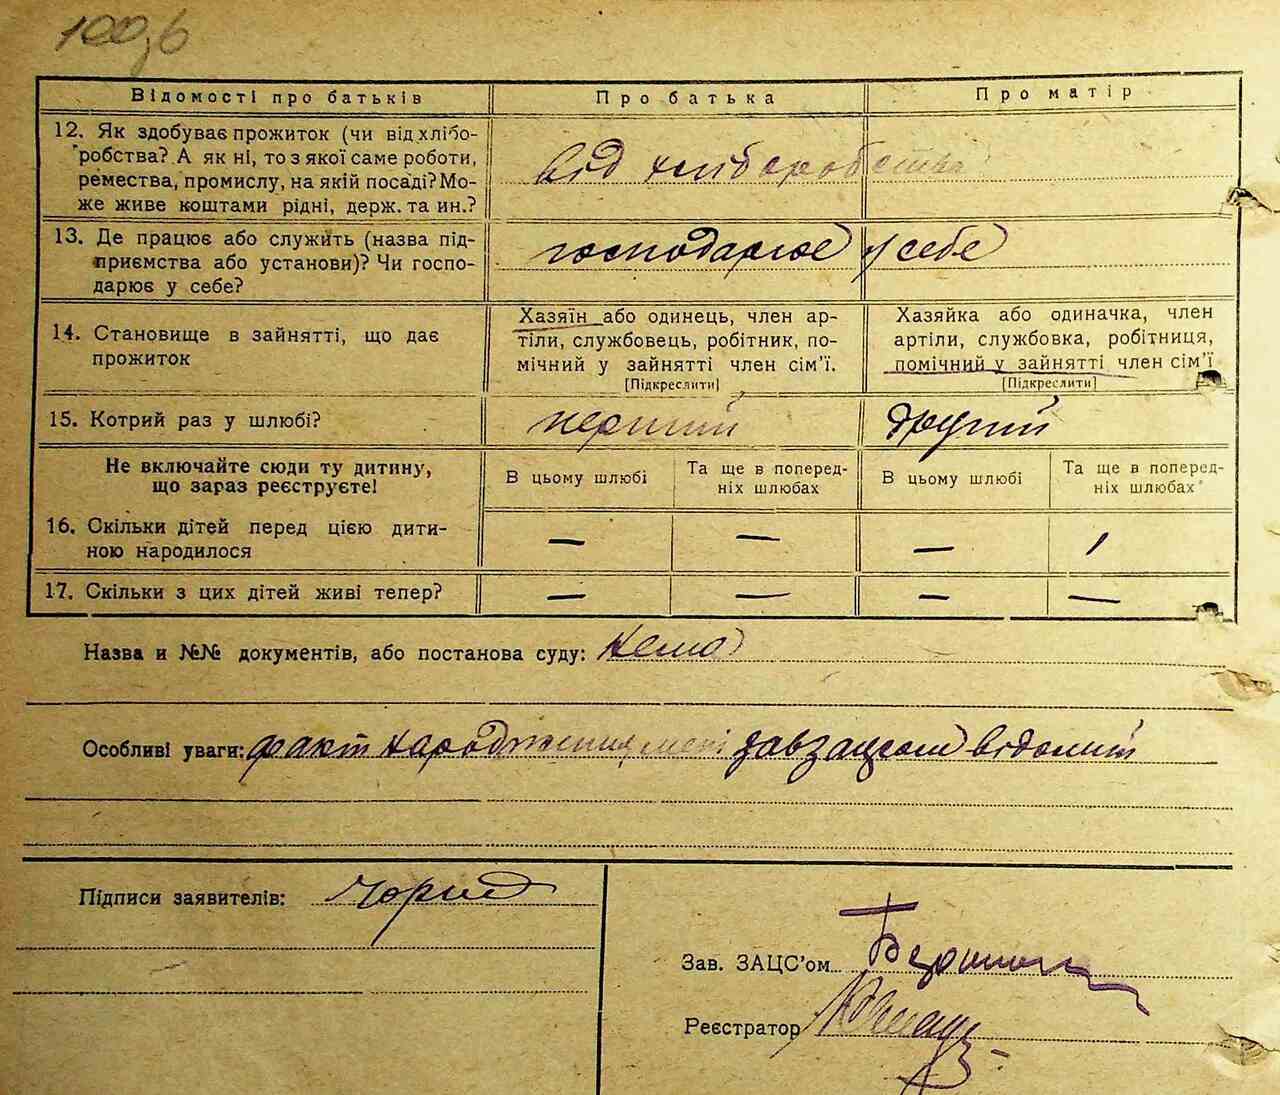 100зв
Відомості про батьків
Про батька
Про матір
12. Як здобуває прожиток (чи від хлібо-
робства? А як ні, то з якої саме роботи,
ремества, промислу, на якій посаді? Мо-
же живе коштами рідні, держ. та ин.?
від хліборобства
13. Де працює або служить (назва під-
приємства або установи)? Чи госпо-
дарює у себе?
господарює у себе
14. Становище в зайнятті, що дає
прожиток
Хазяїн або одинець, член ар-
тіли, службовець, робітник, по-
мічний у зайнятті член сім'ї.
[Підкреслити]
Хазяйка або одиначка, член
артіли, службовка, робітниця,
помічний у зайнятті член сім'ї
[Підкреслити]
15. Котрий раз у шлюбі?
перший
другий
Не включайте сюди ту дитину,
що зараз реєструєте!
В цьому шлюбі
Та ще в поперед-
ніх шлюбах
В цьому шлюбі
Та ще в поперед-
ніх шлюбах
16. Скільки дітей перед цією дити-
ною народилося
— — — 1
17. Скільки з цих дітей живі тепер?
— — — —
Назва и №№ документів, або постанова суду: Нема
Особливі уваги: факт народження мені завзагсом відомий
Підписи заявителів:
Зав. ЗАЦС'ом
Реєстратор